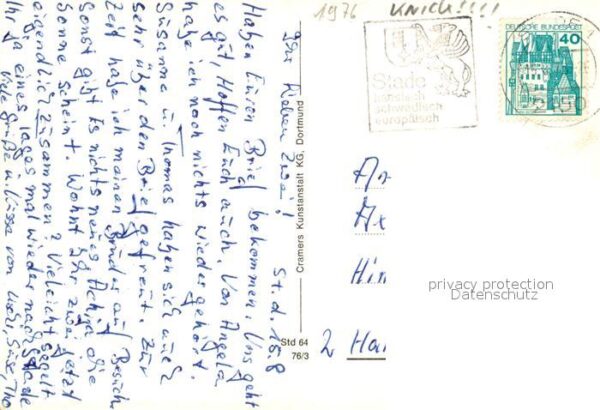 1976 KNICK!!!!
DEUTSCHE BUNDESPOST
40
Stade
hansisch
schwedisch
europäisch
St. d. 15.8
Ihr Lieben Zwei!
Haben Euren Brief bekommen. Uns geht
es gut, Hoffen Euch auch. Von Angela
habe ich noch nichts wieder gehört.
Susanne u. Thomas haben sich auch
sehr über den Brief gefreut. Zur
Zeit habe ich meinen Bruder auf Besuch.
sonst gibt Es nichts neues. Ach ja die
Sonne scheint. Wohnt Ihr zwei jetzt
eigendlich zusammen? Vieleicht segelt
Ihr ja eines Tages mal wieder nach Stade
viele Grüße u. Küsse von Susi, Tho
Cramers Kunstanstalt KG, Dortmund
Std 64
76/3
An
Ax
Hin
2 Ham
privacy protection
Datenschutz